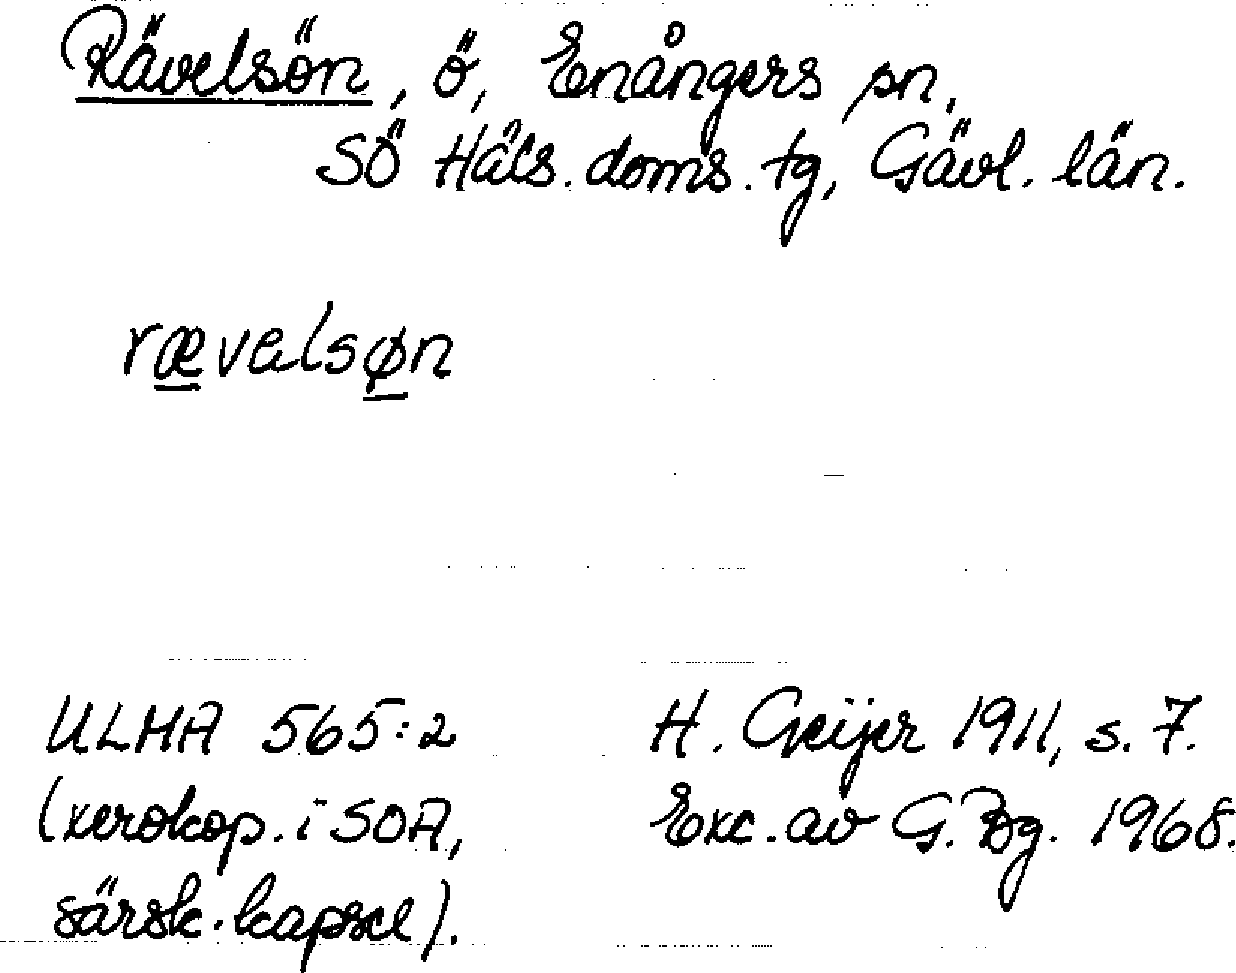 Rävelsön, ö, Enångers sn,
SÖ Häls. doms. tg, Gävl. län.
rævelsøn
ULMA 565:2
(xerokop. i SOA,
särsk. kapsel).
H. Geijer 1911, s. 7.
Exc. av G. Bg. 1968.